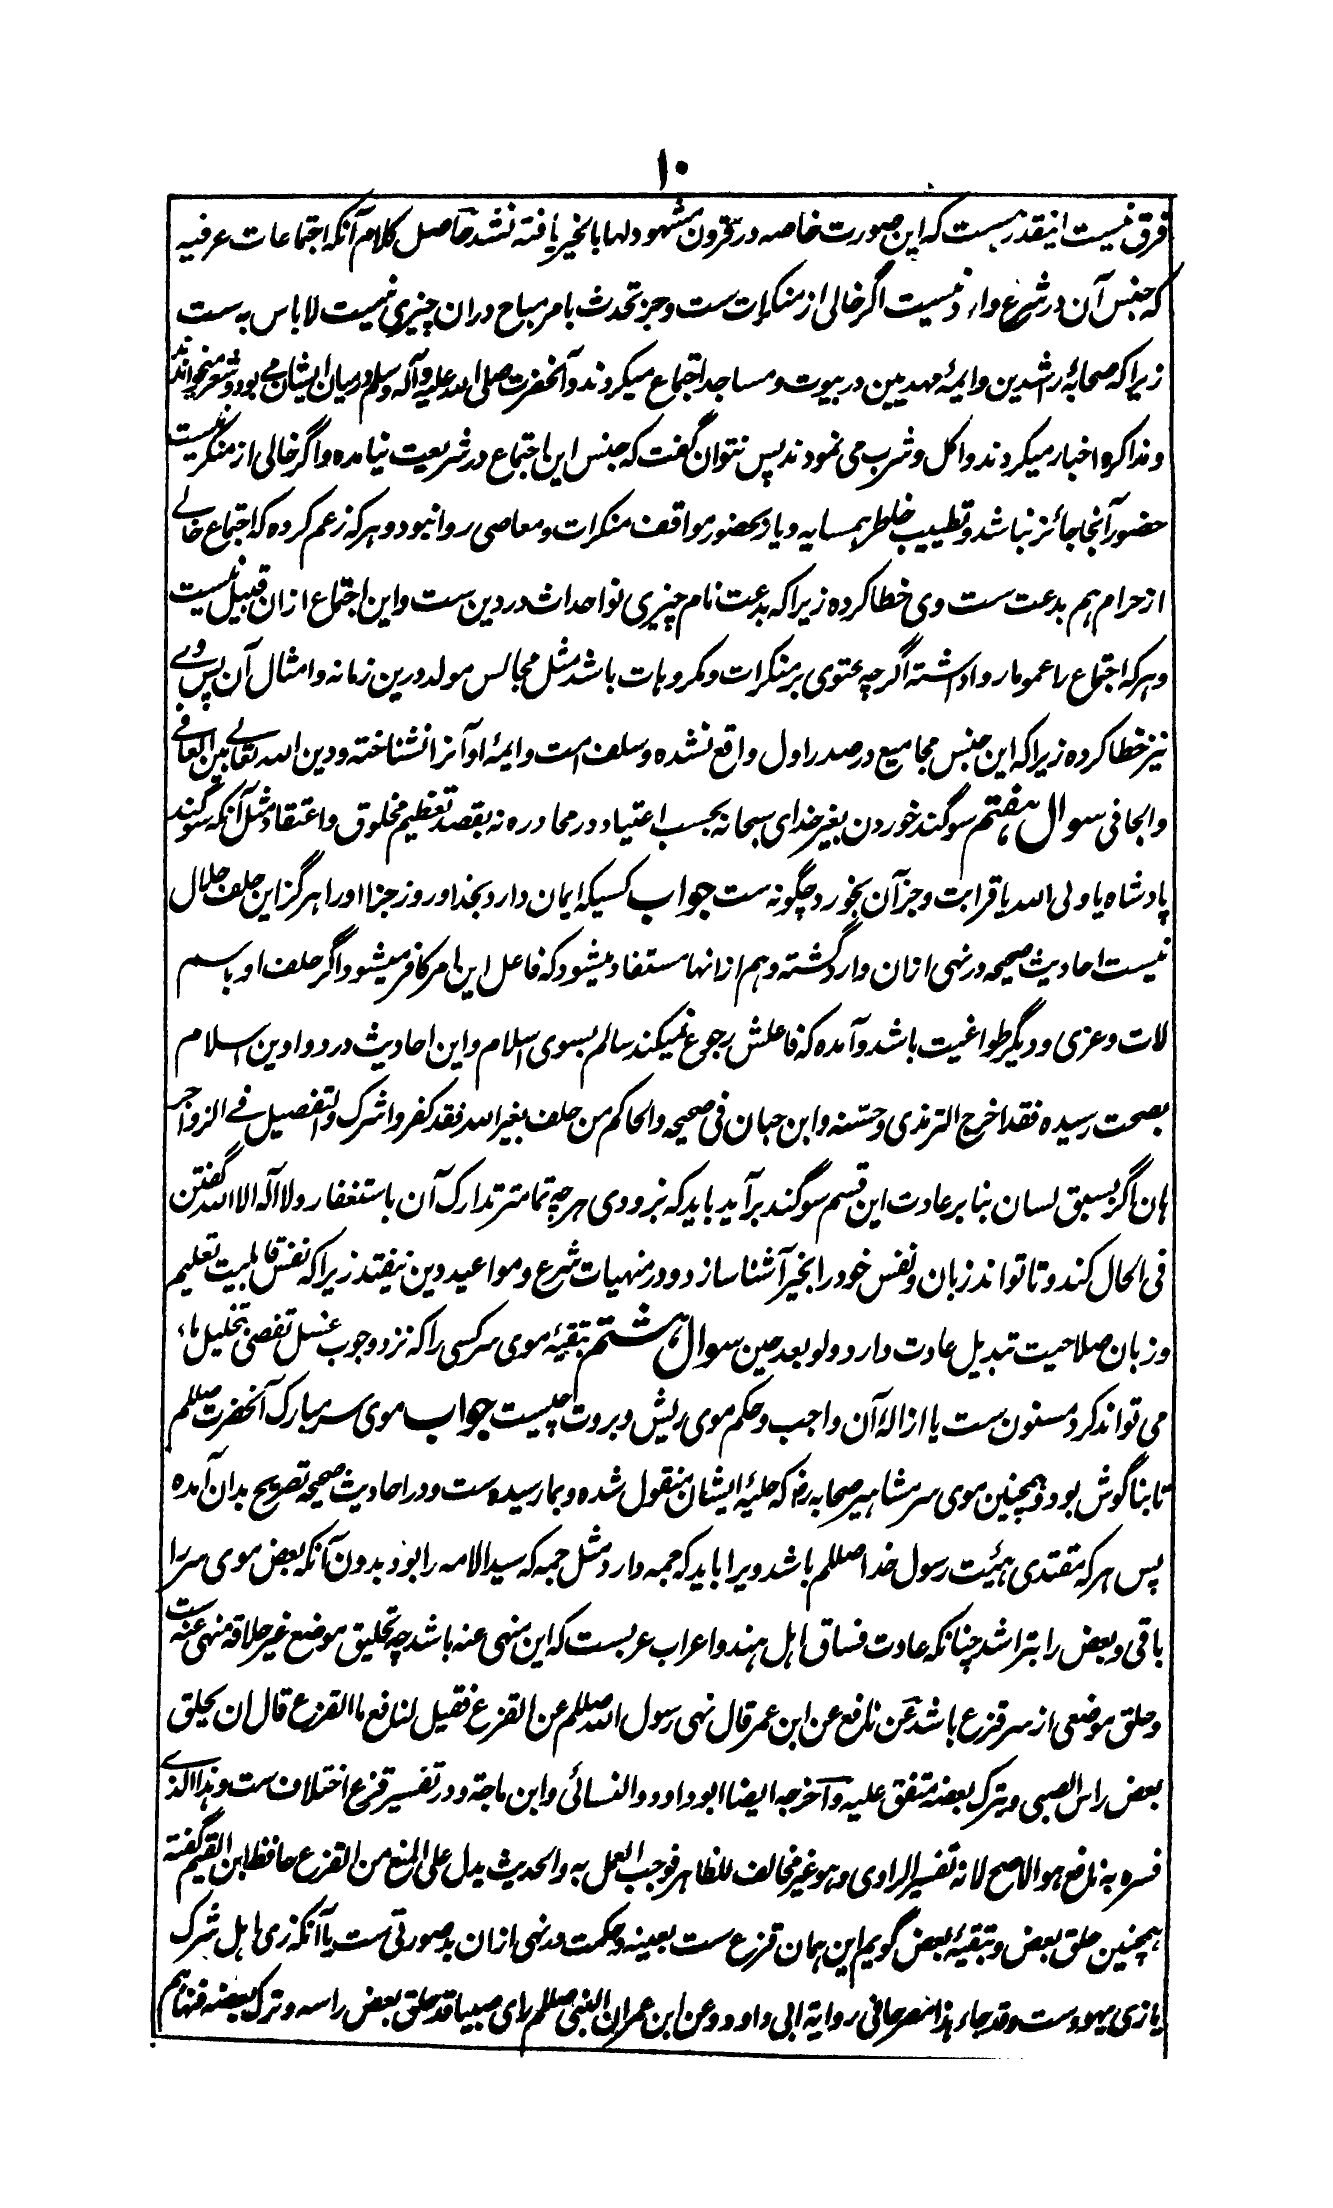 ۱۰
فرق نیست اینقدر هست که این صورت خاصه در قرون مشهود لها بالخیر یافته نشد حاصل کلام آنکه اجتماعات عرفیه
که جنس آن در شرع وارد نیست اگر خالی از منکرات ست و جز تحدث بامر مباح دران چیزی نیست لا باس به ست
زیرا که صحابۀ راشدین و ایمۀ مهدیین در بیوت و مساجد اجتماع میکردند و آنحضرت صلی الله علیه وآله وسلم درمیان ایشان می بود و شعر میخواندند
و مذاکره اخبار میکردند و اکل و شرب می نمودند پس نتوان گفت که جنس این اجتماع در شریعت نیامده و اگر خالی از منکر نیست
حضور آنجا جائز نباشد و تطییب خاطر همسایه و یار بحضور مواقف منکرات و معاصی روا نبود و هرکه زعم کرده که اجتماع خالی
از حرام هم بدعت ست وی خطا کرده زیرا که بدعت نام چیزی نو احداث در دین ست و این اجتماع ازان قبیل نیست
و هرکه اجتماع را عموما روا داشته اگرچه محتوی بر منکرات و مکروهات باشد مثل مجالس مولد درین زمانه و امثال آن پس وے
نیز خطا کرده زیرا که این جنس مجامیع در صدر اول واقع نشده و سلف امت و ایمۀ او آنرا نشناخته و دین الله تعالی بین الغالی
والجافی سوال هفتم سوگند خوردن بغیر خدای سبحانه بحسب اعتیاد در محاوره نه بقصد تعظیم مخلوق و اعتقاد مثل آنکه سوگند
پادشاه یا ولی الله یا قرابت و جز آن بخورد چگونه ست جواب کسیکه ایمان دارد بخدا و روز جزا او را هرگز این حلف حلال
نیست احادیث صحیحه در نهی ازان وارد گشته و هم ازانها مستفاد میشود که فاعل این امر کافر میشود اگر حلف او باسم
لات و عزی و دیگر طواغیت باشد و آمده که فاعلش رجوع نمیکند سالم بسوی اسلام و این احادیث در دواوین اسلام
بصحت رسیده فقد اخرج الترمذی وحسّنه وابن حبان فی صحیحه والحاکم من حلف بغیر الله فقد کفر واشرک والتفصیل فی الزواجر
هان اگر بسبق لسان بنا بر عادت این قسم سوگند برآید باید که بزودی هرچه تمامتر تدارک آن باستغفار و لا اله الا الله گفتن
فی الحال کند و تا تواند زبان و نفس خود را بخیر آشنا سازد و در منهیات شرع و مواعید دین نیفتد زیرا که نفس قابلیت تعلیم
و زبان صلاحیت تبدیل عادت دارد ولو بعد حین سوال هشتم تبقیۀ موی سر کسی را که نزد وجوب غسل تفصی بتخلیل ماء
می تواند کرد مسنون ست یا ازالۀ آن واجب و حکم موی ریش و بروت چیست جواب موی سر مبارک آنحضرت صللم
تا بناگوش بود و همچنین موی سر مشاهیر صحابه رض که حلیۀ ایشان منقول شده و بما رسیده ست و در احادیث صحیحه تصریح بدان آمده
پس هرکه مقتدی هیئت رسول خدا صللم باشد ویرا باید که جمه دارد مثل جمه که سید الامه را بود بدون آنکه بعض موی سر را
باقی و بعض را بتراشد چنانکه عادت فساق اهل هند و اعراب عربست که این منهی عنه باشد چه تحلیق موضع غیر حلاقه منهی عنه ست
و حلق موضعی از سر قزع باشد عن نافع عن ابن عمر قال نهی رسول الله صللم عن القزع فقیل لنافع ما القزع قال ان یحلق
بعض راس الصبی ویترک بعضه متفق علیه وآخرجه ایضا ابو داود والنسائی وابن ماجة و در تفسیر قزع اختلاف ست وهذا الذی
فسره به نافع هو الاصح لانه تفسیر الراوی وهو غیر مخالف للظاهر فوجب العمل به والحدیث یدل علی المنع من القزع حافظ ابن القیم گفته
همچنین حلق بعض و تبقیۀ بعض گویم این همان قزع ست بعینه و حکمت در نهی ازان بدصورتی ست یا آنکه زی اهل شرک
یا زی یهود ست وقد جاء هذا مصرحا فی روایة ابی داود وعن ابن عمر ان النبی صللم رای صبیا قد حلق بعض راسه وترک بعضه فنهاهم